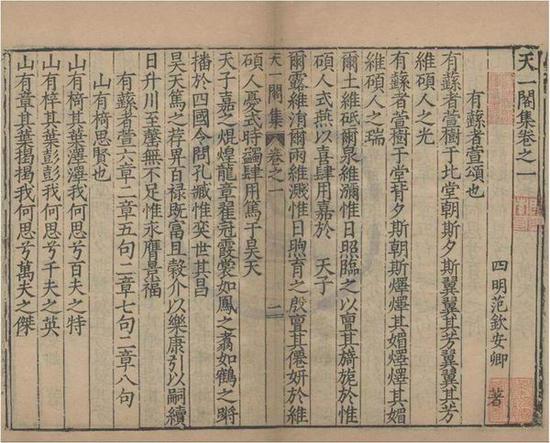 天一閣集卷之一
四明范欽安卿 著
有蘇者萱頌也
有蘇者萱樹于北堂朝斯夕斯翼翼其芳翼翼其芳
維碩人之光
有蘇者萱樹于堂背夕斯朝斯燡燡其媚燡燡其媚
維碩人之瑞
爾土維砥爾泉維瀰惟日照臨之以亶其旖旎於惟
碩人式燕以喜肆用嘉於 天子
爾露維湑爾雨維濊惟日煦育之殷亶其僊妍於維
天一閣集 卷之一 一
碩人憂式時蠲肆用篤于昊天
天子嘉之焜煌龍章翟冠霞裳如鳳之翥如鶴之蹌
播於四國令問孔臧惟奕世其昌
昊天篤之荐畀百祿既富且穀介以樂康引以嗣續
日升川至罄無不足惟永膺景福
有蘇者萱六章二章五句二章七句二章八句
山有椅思賢也
山有椅其葉濢濢我何思兮百夫之特
山有梓其葉彭彭我何思兮千夫之英
山有章其葉揭揭我何思兮萬夫之傑